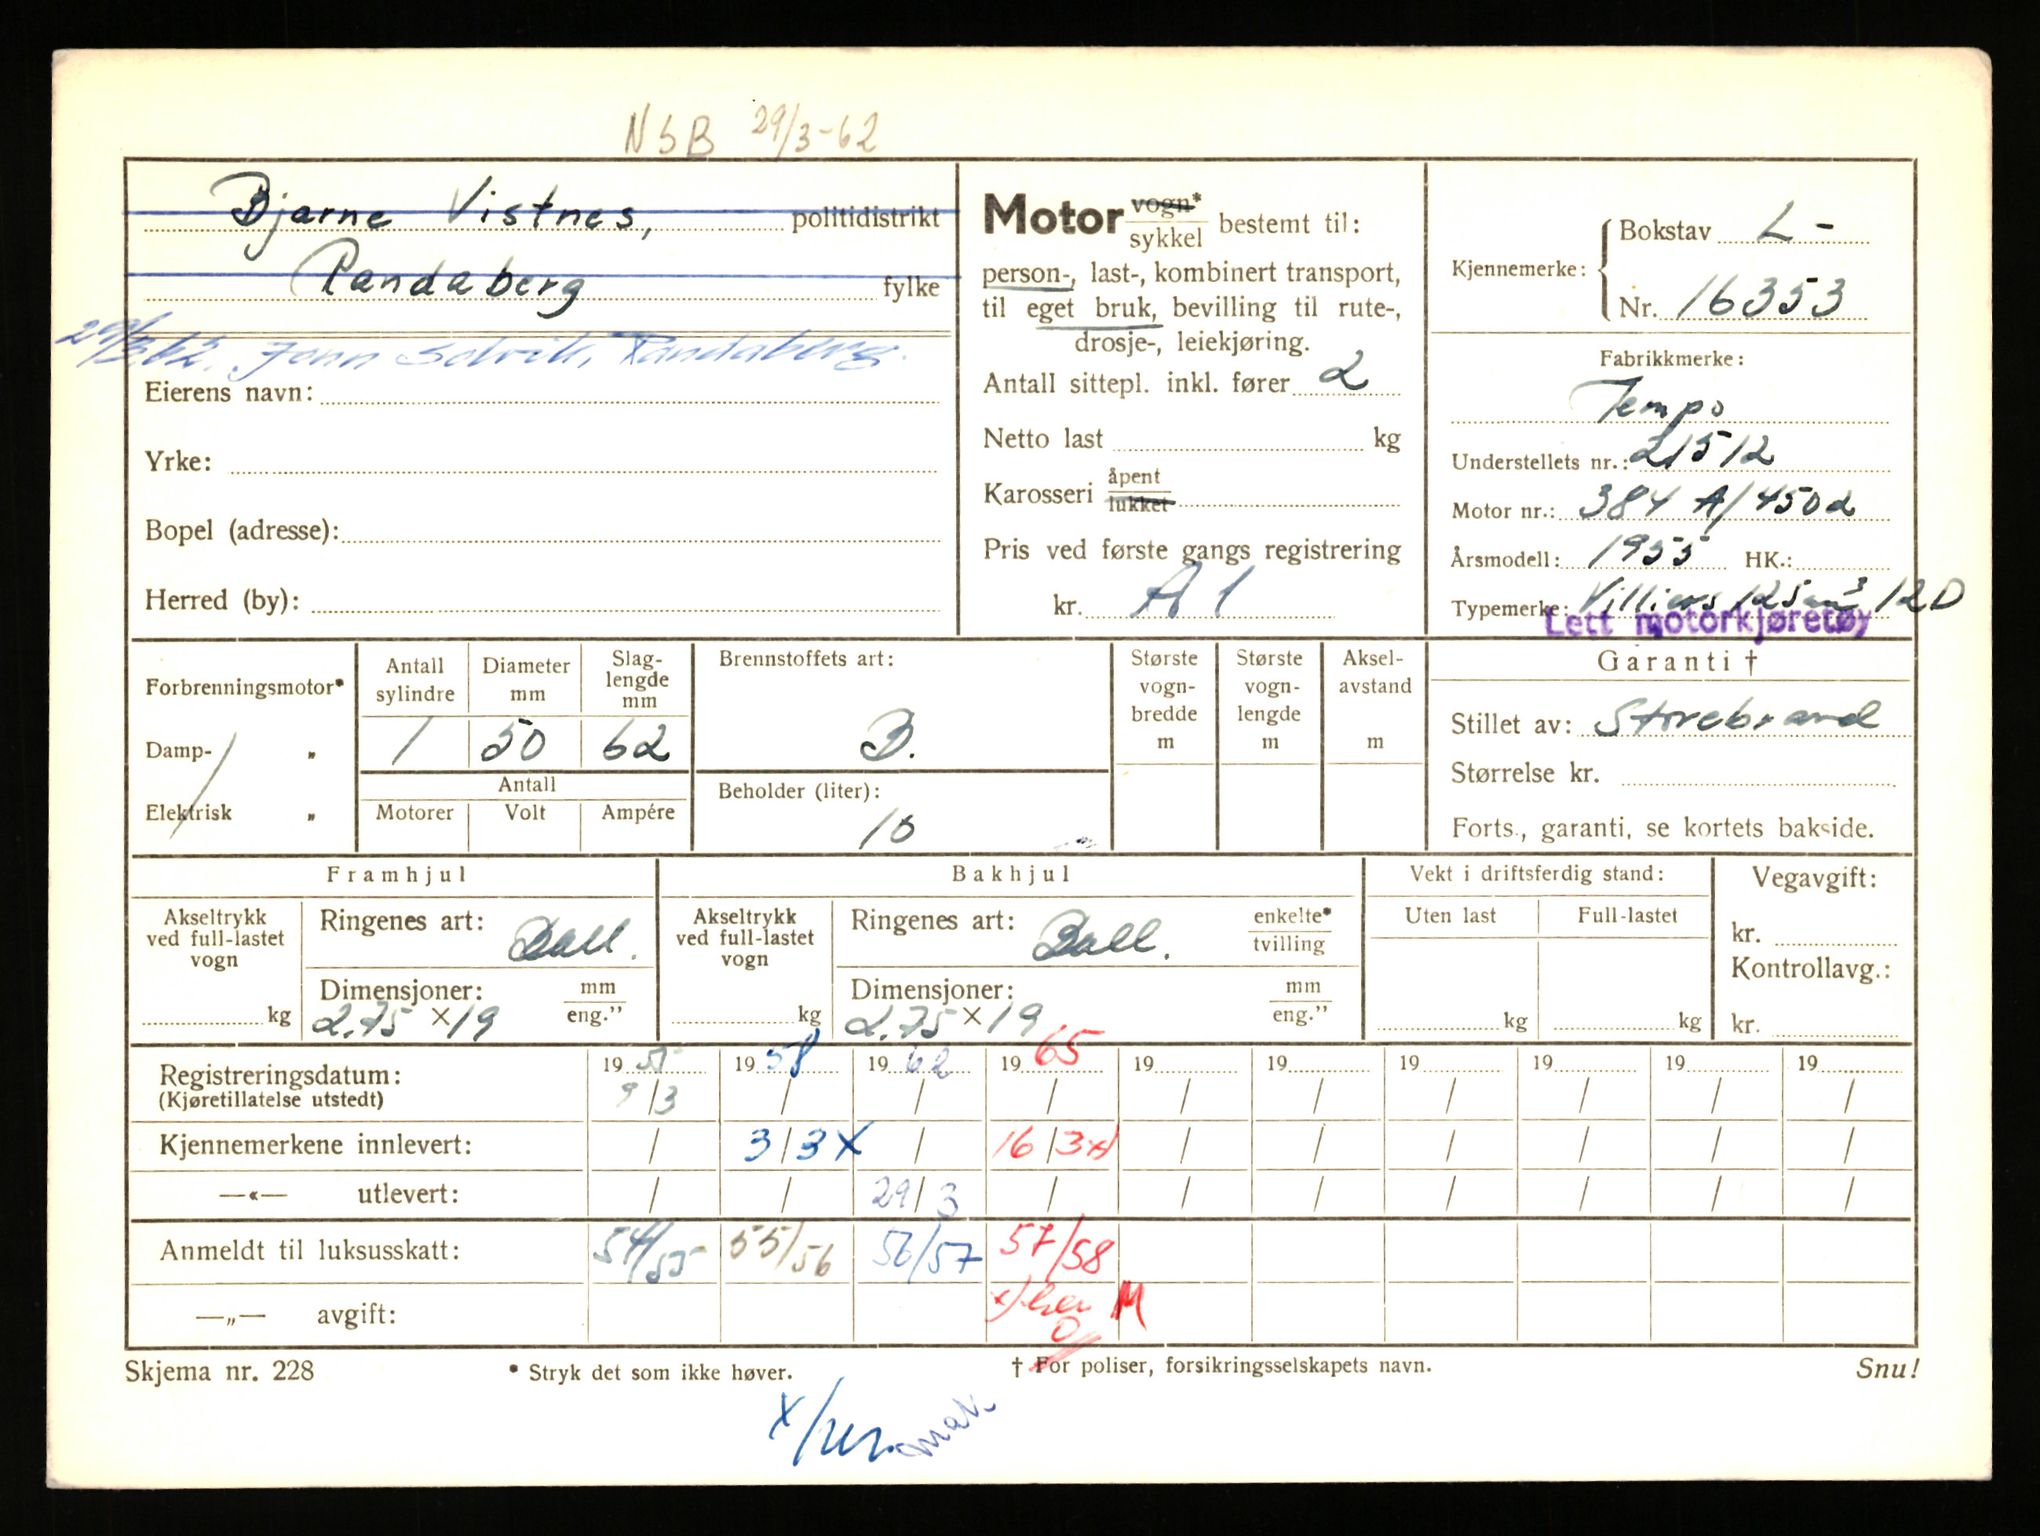 NSB 29/3-62
Bjarne Vistnes, politidistrikt
Randaberg fylke
29/3.62. Randaberg.
Eierens navn:
Yrke:
Bopel (adresse):
Herred (by):
Motor vogn* sykkel bestemt til:
person-, last-, kombinert transport,
til eget bruk, bevilling til rute-,
drosje-, leiekjøring.
Antall sittepl. inkl. fører 2
Netto last kg
Karosseri åpent lukket
Pris ved første gangs registrering
kr. A 1
Kjennemerke: Bokstav L -
Nr. 16353
Fabrikkmerke:
Tempo
Understellets nr.: 21512
Motor nr.: 384 A/4502
Årsmodell: 1955 HK.:
Typemerke: Villiers 125 cm³ 12D
Lett motorkjøretøy
Forbrenningsmotor*
Damp- „
Elektrisk „
Antall sylindre
Diameter mm
Slaglengde mm
1 50 62
Antall
Motorer Volt Ampére
Brennstoffets art:
B.
Beholder (liter):
10
Største vogn-bredde m
Største vogn-lengde m
Aksel-avstand m
Garanti †
Stillet av: Storebrand
Størrelse kr.
Forts., garanti, se kortets bakside.
Framhjul
Akseltrykk ved full-lastet vogn
kg
Ringenes art: Ball.
Dimensjoner: mm eng.”
2.75 × 19
Bakhjul
Akseltrykk ved full-lastet vogn
kg
Ringenes art: Ball. enkelte* tvilling
Dimensjoner: mm eng.”
2.75 × 19
Vekt i driftsferdig stand:
Uten last Full-lastet
kg kg
Vegavgift:
kr.
Kontrollavg.:
kr.
Registreringsdatum: 19 55 19 58 19 62 19 65 19 19 19 19 19 19
(Kjøretillatelse utstedt) 9/3 / / / / / / / / /
Kjennemerkene innlevert: / 3/3 X / 16/3 x) / / / / / /
—«— utlevert: / / 29/3 / / / / / / /
Anmeldt til luksusskatt: 54/55 55/56 56/57 57/58
—„— avgift: x) her M
Skjema nr. 228
* Stryk det som ikke høver.
† For poliser, forsikringsselskapets navn.
Snu!
x/her. mak.